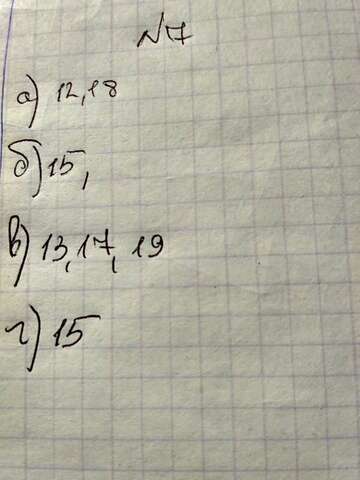 №7
а) 12,18
б) 15,
в) 13,17, 19
г) 15